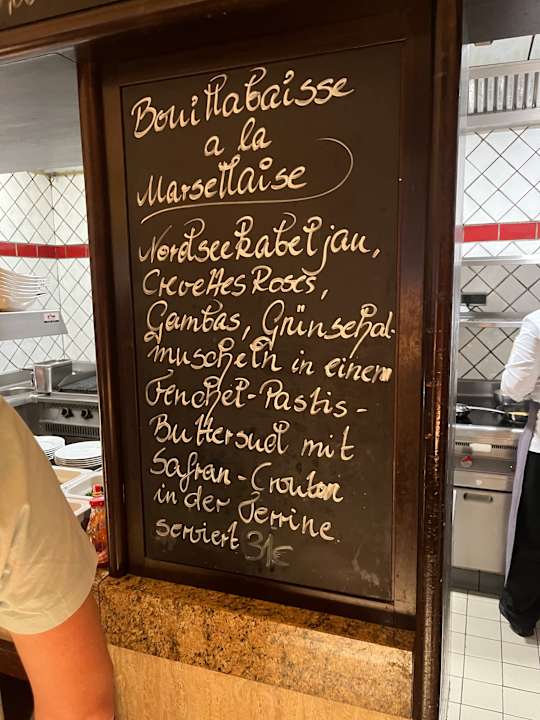 Bouillabaisse
a la
Marseillaise
Nordseekabeljau,
Crevettes Roses,
Gambas, Grünschal-
muscheln in einem
Fenchel-Pastis-
Buttersud mit
Safran-Crouton
in der Terrine
serviert 31€